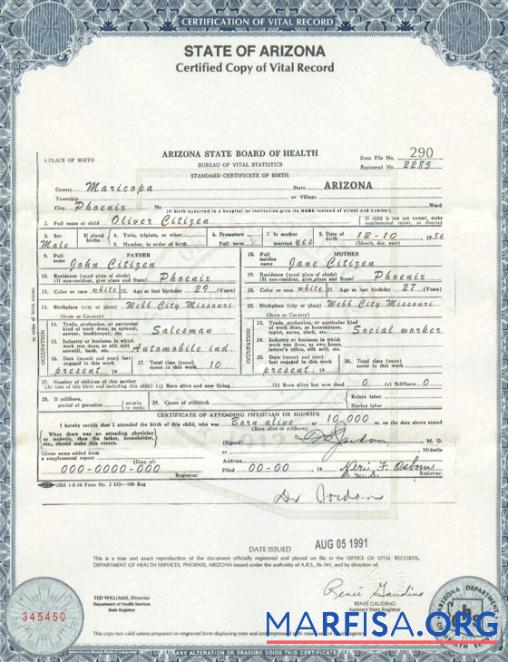 CERTIFICATION OF VITAL RECORD
STATE OF ARIZONA
Certified Copy of Vital Record
ARIZONA STATE BOARD OF HEALTH
BUREAU OF VITAL STATISTICS
STANDARD CERTIFICATE OF BIRTH
State File No. 290
Registered No. 2285
1. PLACE OF BIRTH
County Maricopa State ARIZONA
Township or Village
City Phoenix No Ward
(If birth occurred in a hospital or institution, give its NAME instead of street and number)
2. Full name of child Oliver Citizen If child is not yet named, make supplemental report, as directed
3. Sex Male If plural births 4. Twin, triplets, or other 6. Premature 7. Is mother married yes 8. Date of birth 12-10 1986
5. Number, in order of birth Full term (Month, day, year)
9. Full name FATHER John Citizen
18. Full maiden name MOTHER Jane Citizen
10. Residence (usual place of abode) (If non-resident, give place and State) Phoenix
19. Residence (usual place of abode) (If non-resident, give place and State) Phoenix
11. Color or race white 12. Age at last birthday 29 (Years)
20. Color or race white 21. Age at last birthday 27 (Years)
13. Birthplace (city or place) Webb City Missouri
(State or Country)
22. Birthplace (city or place) Webb City Missouri
(State or Country)
OCCUPATION
14. Trade, profession, or particular kind of work done, as spinner, sawyer, bookkeeper, etc. Salesman
15. Industry or business in which work was done, as silk mill, sawmill, bank, etc. Automobile ind.
16. Date (month and year) last engaged in this work present, 19 17. Total time (years) spent in this work 10
OCCUPATION
23. Trade, profession, or particular kind of work done, as housekeeper, typist, nurse, clerk, etc. Social worker
24. Industry or business in which work was done, as own home, lawyer's office, silk mill, etc.
25. Date (month and year) last engaged in this work present, 19 26. Total time (years) spent in this work
27. Number of children of this mother
(At time of this birth and including this child) (a) Born alive and now living (b) Born alive but now dead 0 (c) Stillborn 0
28. If stillborn, period of gestation months or weeks 29. Cause of stillbirth Before labor
During labor
CERTIFICATE OF ATTENDING PHYSICIAN OR MIDWIFE
I hereby certify that I attended the birth of this child, who was Born alive at 10,000 m. on the date above stated
(Born alive or stillborn)
When there was no attending physician or midwife, then the father, householder, etc., should make this return.
(Signed) M. D.
or Midwife
Given name added from a supplemental report
(Date of)
Address
000-0000-000
Registrar.
Filed 00-00, 19 Neri F. Osborn
Registrar.
Dr Jordan
DATE ISSUED AUG 05 1991
This is a true and exact reproduction of the document officially registered and placed on file in the OFFICE OF VITAL RECORDS,
DEPARTMENT OF HEALTH SERVICES, PHOENIX, ARIZONA issued under the authority of A.R.S. 36-341, and by direction of:
TED WILLIAMS, Director
Department of Health Services
State Registrar
Renée Gaudino
RENEE GAUDINO
Assistant State Registrar
345450
ARIZONA DEPARTMENT
HEALTH
This copy not valid unless prepared on engraved form displaying state seal and impressed with raised seal
MARFISA.ORG
ANY ALTERATION OR ERASURE VOIDS THIS CERTIFICATE